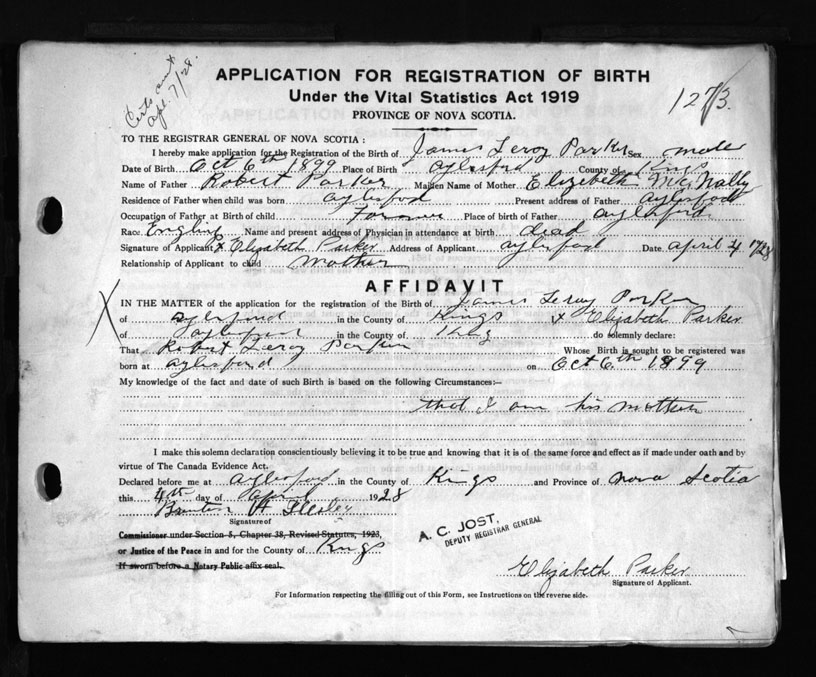 Certs sent
Apl. 7/28.
APPLICATION FOR REGISTRATION OF BIRTH
Under the Vital Statistics Act 1919
PROVINCE OF NOVA SCOTIA.
1273.
TO THE REGISTRAR GENERAL OF NOVA SCOTIA :
I hereby make application for the Registration of the Birth of James Leroy Parker Sex male
Date of Birth Oct 6th 1899 Place of Birth Aylesford County of Kings
Name of Father Robert Parker Maiden Name of Mother Elizabeth McNally
Residence of Father when child was born Aylesford Present address of Father Aylesford
Occupation of Father at Birth of child Farmer Place of birth of Father Aylesford
Race English Name and present address of Physician in attendance at birth dead
Signature of Applicant X Elizabeth Parker Address of Applicant Aylesford Date April 4 1928
Relationship of Applicant to child Mother
AFFIDAVIT
IN THE MATTER of the application for the registration of the Birth of James Leroy Parker
of Aylesford in the County of Kings x Elizabeth Parker
of Aylesford in the County of Kings do solemnly declare:
That Robert Leroy Parker Whose Birth is sought to be registered was
born at Aylesford on Oct 6th 1899
My knowledge of the fact and date of such Birth is based on the following Circumstances:—
that I am his mother
I make this solemn declaration conscientiously believing it to be true and knowing that it is of the same force and effect as if made under oath and by
virtue of The Canada Evidence Act.
Declared before me at Aylesford in the County of Kings and Province of Nova Scotia
this 4th day of April 1928
Signature of
Commissioner under Section 5, Chapter 38, Revised Statutes, 1923,
or Justice of the Peace in and for the County of Kings
If sworn before a Notary Public affix seal.
A. C. JOST,
DEPUTY REGISTRAR GENERAL
Elizabeth Parker
Signature of Applicant.
For Information respecting the filling out of this Form, see Instructions on the reverse side.